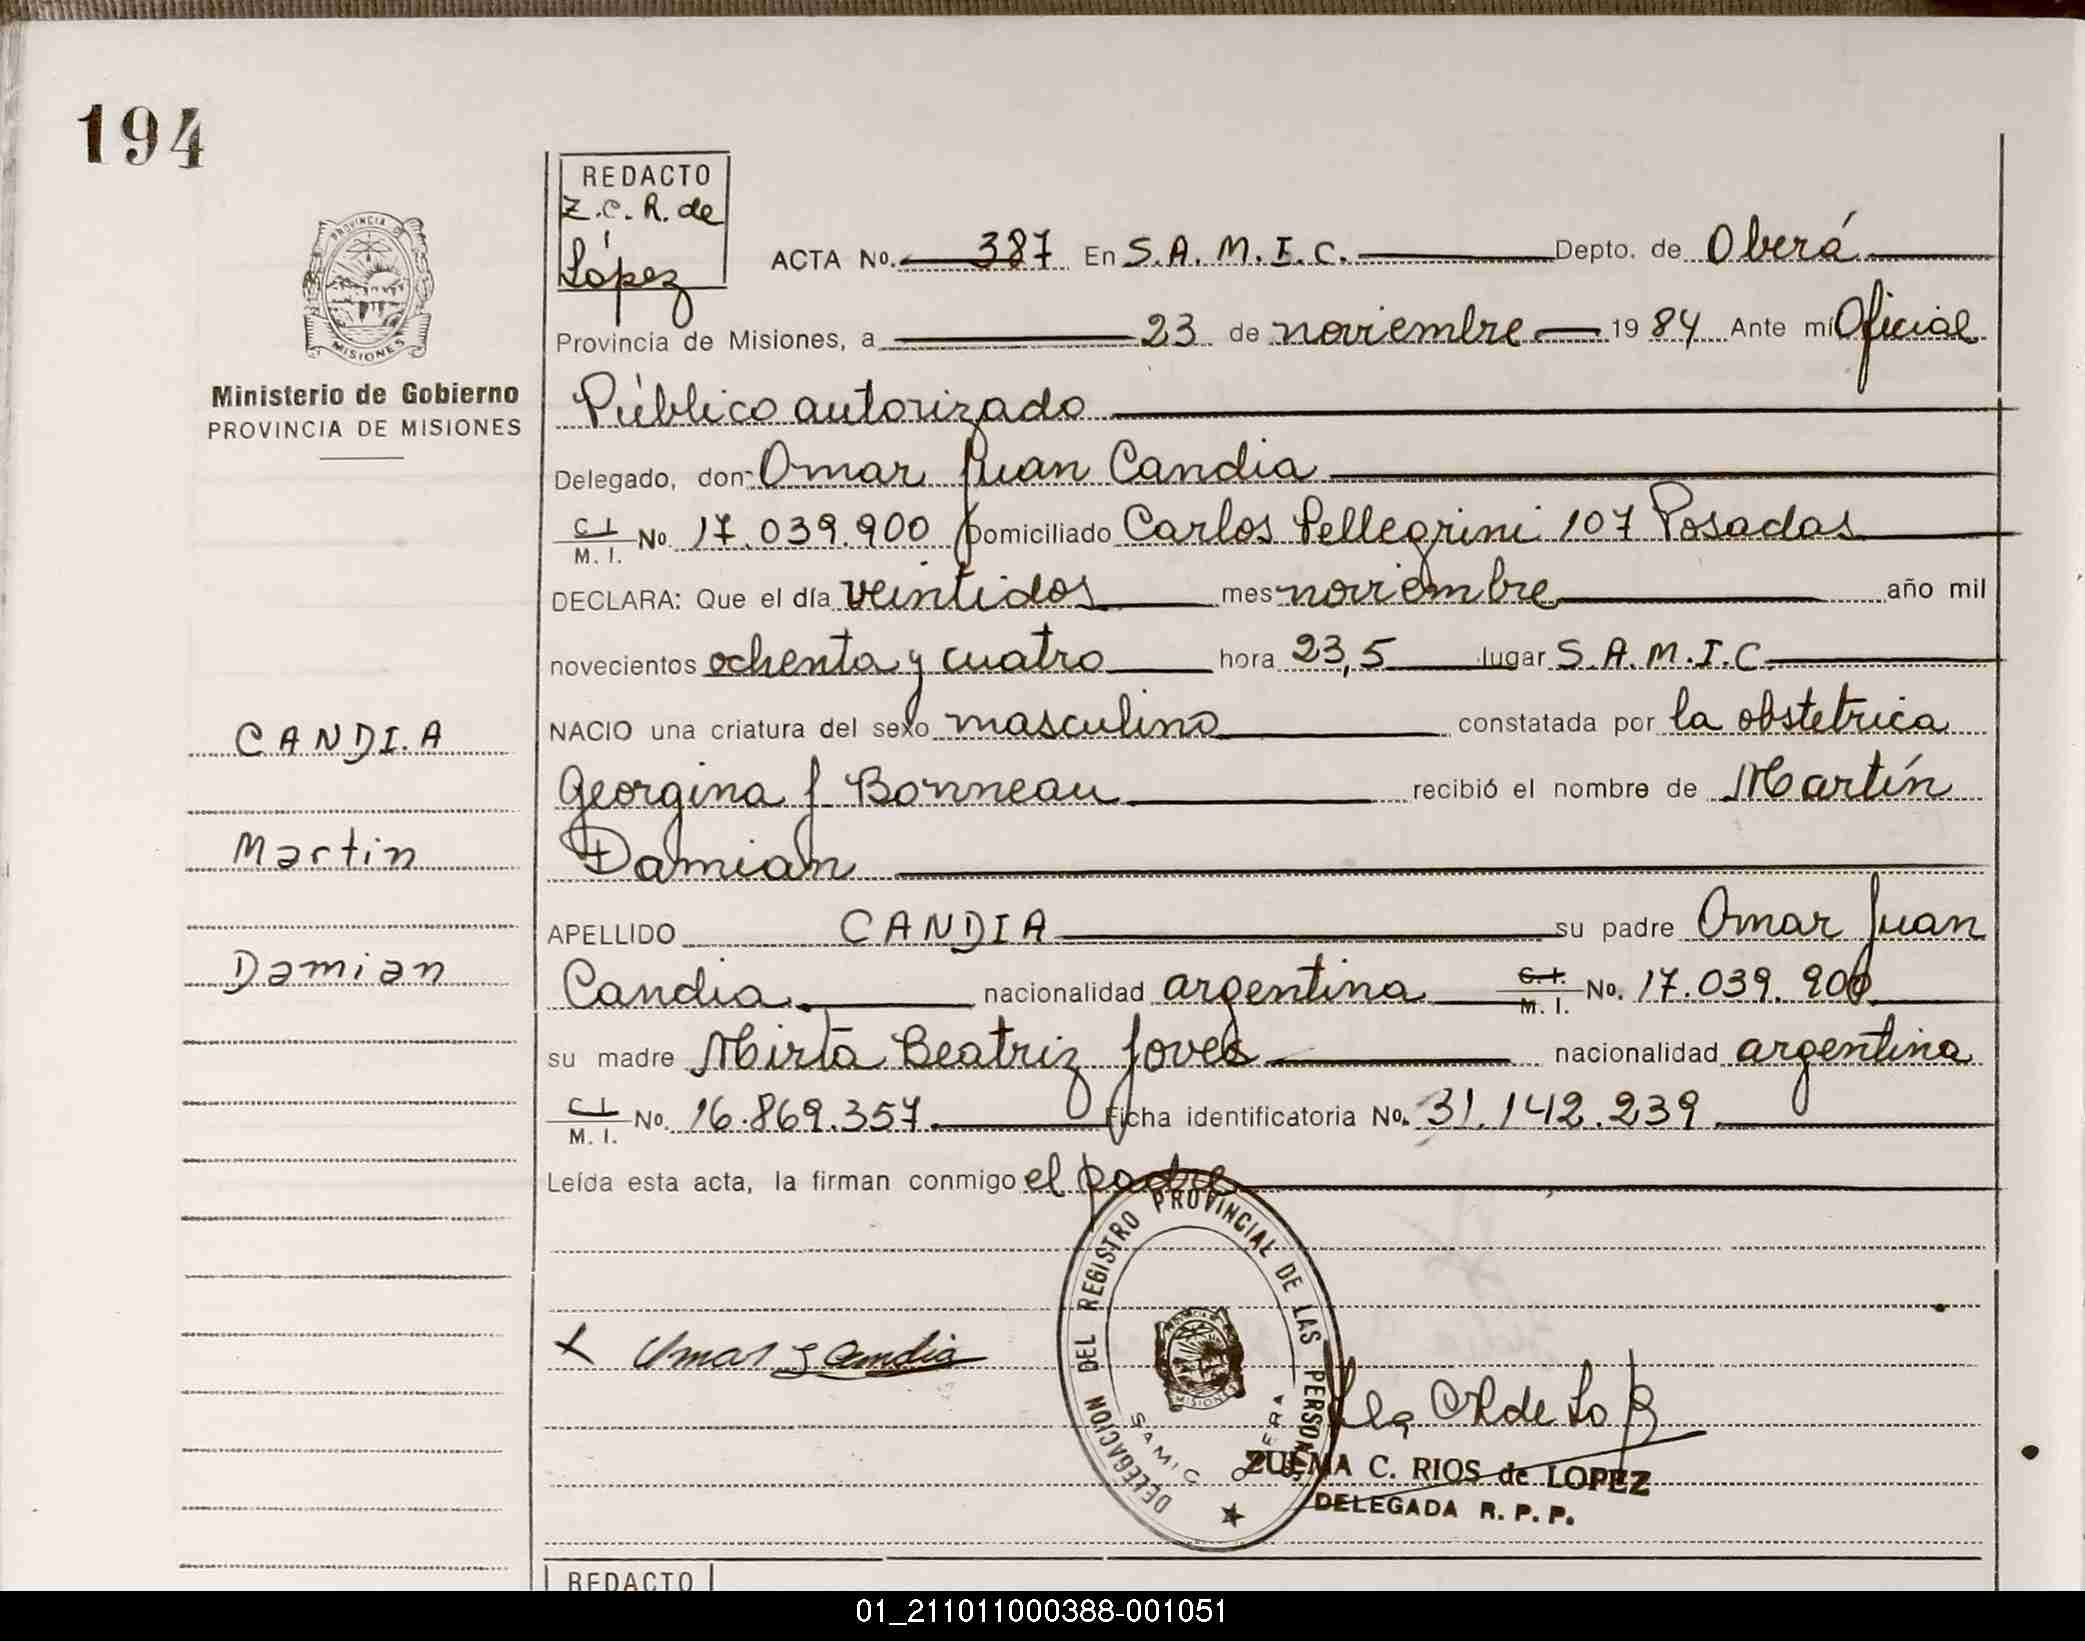 194
REDACTO
Z.C.R. de
López
PROVINCIA DE
MISIONES
Ministerio de Gobierno
PROVINCIA DE MISIONES
ACTA No. 387 En S.A.M.I.C. Depto. de Oberá
Provincia de Misiones, a 23 de noviembre 1984 Ante mí Oficial
Público autorizado
Delegado, don Omar Juan Candia
C.I. M.I. No. 17.039.900 Domiciliado Carlos Pellegrini 107 Posadas
DECLARA: Que el día veintidos mes noviembre año mil
novecientos ochenta y cuatro hora 23,5 lugar S.A.M.I.C.
NACIO una criatura del sexo masculino constatada por la obstetrica
Georgina J Bonneau recibió el nombre de Martín
Damian
APELLIDO CANDIA su padre Omar Juan
Candia nacionalidad argentina C.I. M.I. No. 17.039.900
su madre Mirta Beatriz Joves nacionalidad argentina
C.I. M.I. No. 16.869.357 Ficha identificatoria No. 31.142.239
Leída esta acta, la firman conmigo el padre
CANDIA
Martin
Damian
Omar J Candia
DELEGACION DEL REGISTRO PROVINCIAL DE LAS PERSONAS
MISIONES
SAMIC OBERA
ZULMA C. RIOS de LOPEZ
DELEGADA R. P. P.
REDACTO
01_211011000388-001051